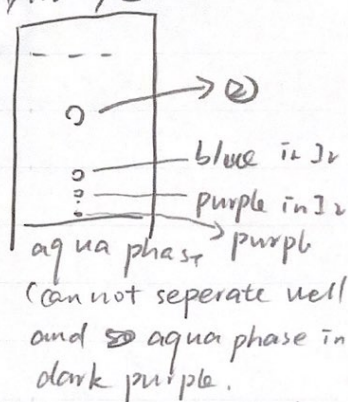 ②
blue in I₂
purple in I₂
purpl
aqua phase
(cannot seperate well
and aqua phase in
dark purple.